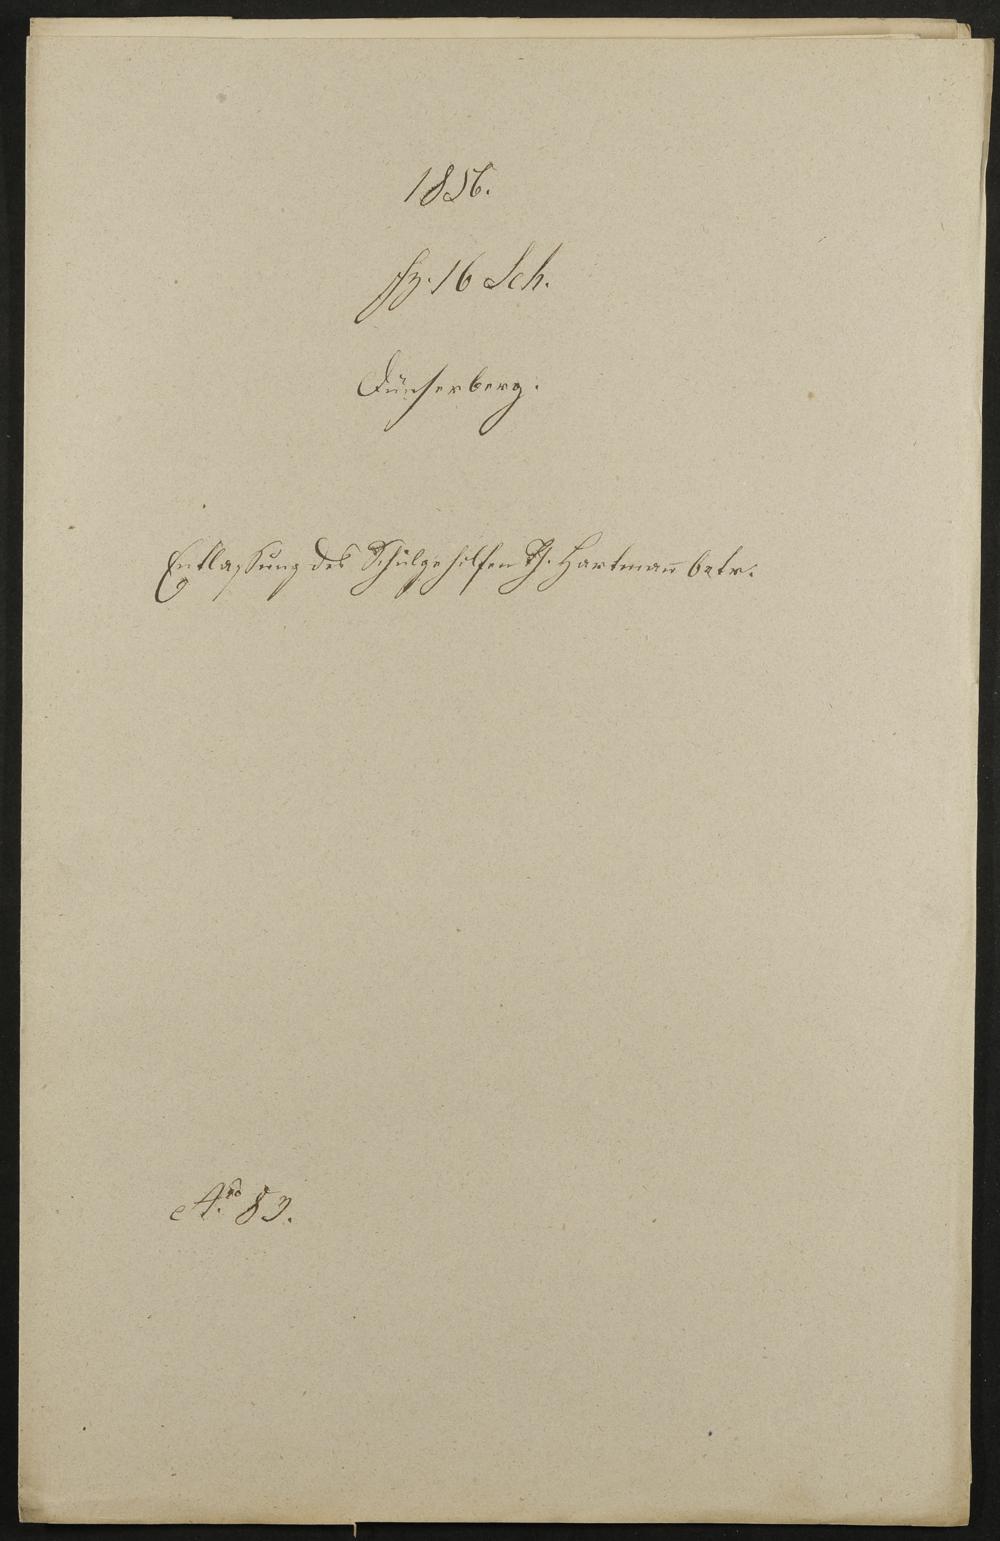 1856.
Fz. 16 Sch.
Dünserberg.
Entlassung des Schulgehilfen Th. Hartmañ betr.
83.